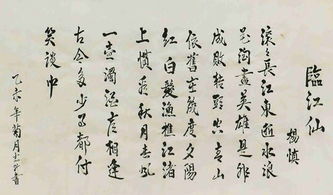 臨江仙
楊慎
滾々長江東逝水浪
花淘盡英雄是非
成敗轉頭空青山
依舊在幾度夕陽
紅白髮漁樵江渚
上慣看秋月春風
一壺濁酒喜相逢
古今多少事都付
笑談中
乙亥年菊月